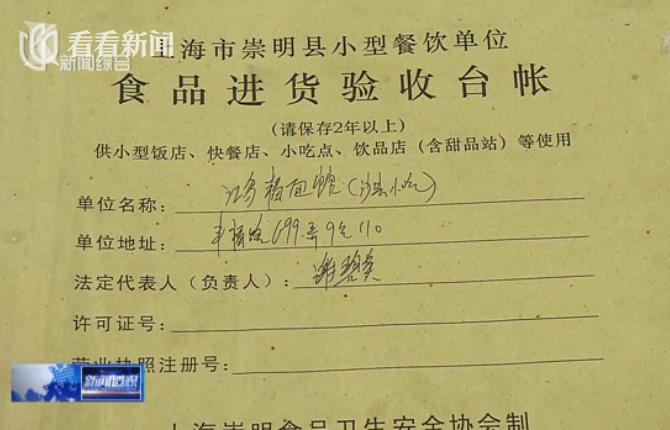 看看新闻
新闻综合
上海市崇明县小型餐饮单位
食品进货验收台帐
(请保存2年以上)
供小型饭店、快餐店、小吃点、饮品店（含甜品站）等使用
单位名称： 面馆(沙县小吃)
单位地址： 699弄9号110
法定代表人（负责人）： 谢碧英
许可证号：
营业执照注册号：
上海崇明食品卫生安全协会制